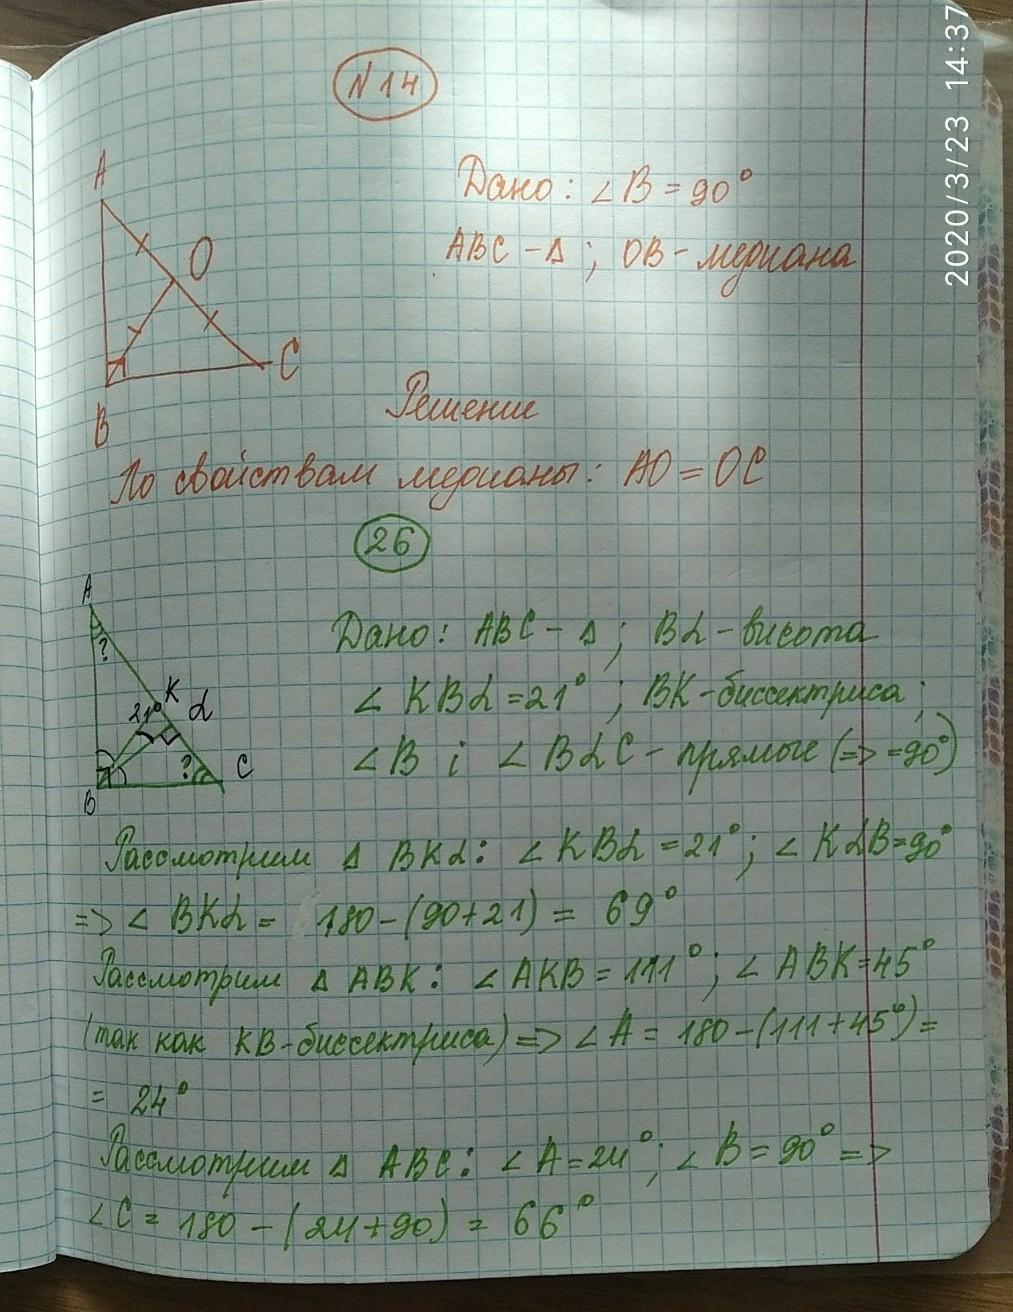 N 14
A
O
C
B
Дано: ∠B = 90°
ABC - Δ ; OB - медиана
Решение
По свойствам медианы: AO = OC
26
A
?
K
21°
L
?
C
B
Дано: ABC - Δ ; BL - висота
∠ KBL = 21° ; BK - биссектриса ;
∠ B i ∠ BLC - прямые (=> = 90°)
Рассмотрим Δ BKL: ∠ KBL = 21° ; ∠ KLB = 90°
=> ∠ BKL = 180 - (90 + 21) = 69°
Рассмотрим Δ ABK: ∠ AKB = 111° ; ∠ ABK = 45°
(так как KB - биссектриса) => ∠ A = 180 - (111 + 45°) =
= 24°
Рассмотрим Δ ABC: ∠ A = 24° ; ∠ B = 90° =>
∠ C = 180 - (24 + 90) = 66°
2020/3/23 14:37